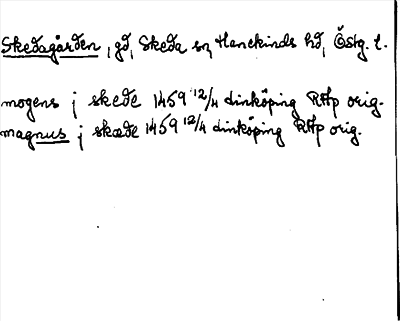 Skedagården, gd, Skeda sn, Hanekinds hd, Östg. l.
mogens j skede 1459 12/4 Linköping RAp orig.
magnus j skæde 1459 12/4 Linköping RAp orig.